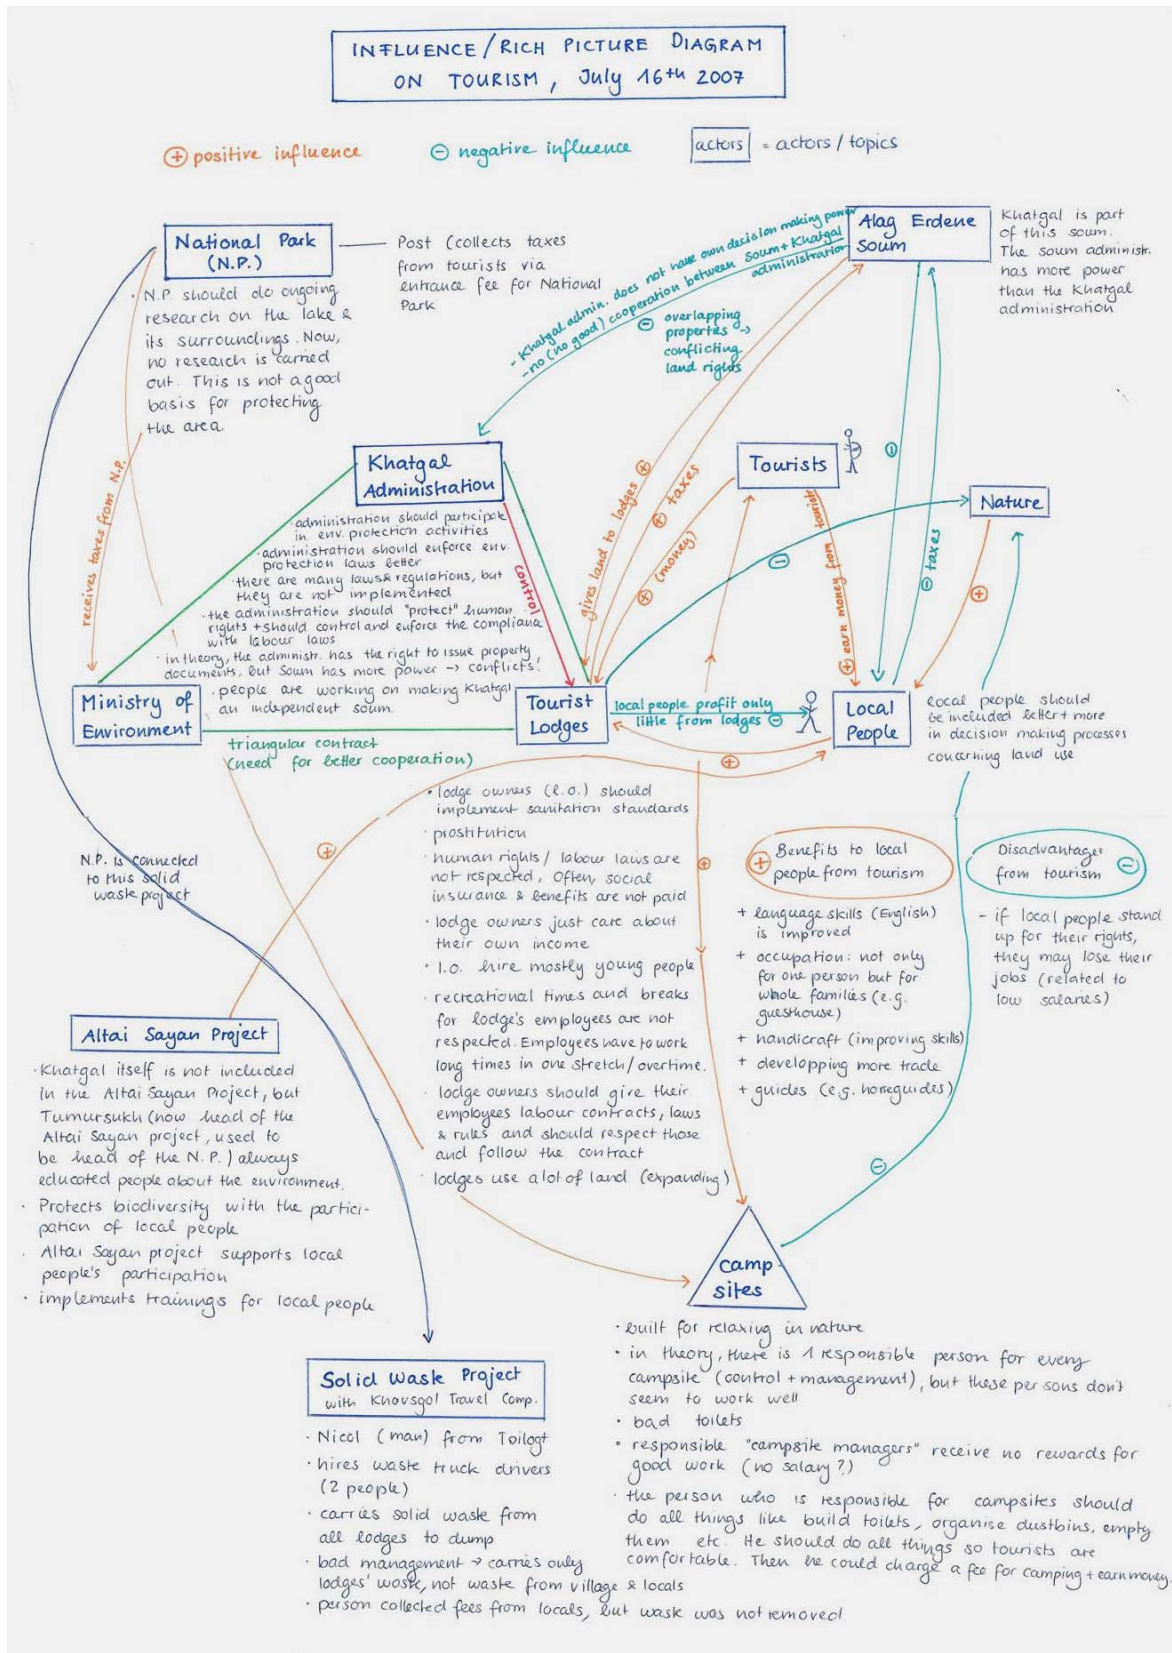 INFLUENCE/RICH PICTURE DIAGRAM
ON TOURISM, July 16th 2007
+ positive influence
- negative influence
actors = actors / topics
National Park
(N.P.)
Post (collects taxes
from tourists via
entrance fee for National
Park
· N.P. should do ongoing
research on the lake &
its surroundings. Now,
no research is carried
out. This is not a good
basis for protecting
the area.
- Khatgal admin. does not have own decision making power
- no (no good) cooperation between Soum + Khatgal
administration
- overlapping
properties →
conflicting
land rights
Alag Erdene
Soum
Khatgal is part
of this soum.
The soum administr.
has more power
than the Khatgal
administration
receives taxes from N.P.
Khatgal
Administration
· administration should participate
in env. protection activities
· administration should enforce env.
protection laws better
· there are many laws & regulations, but
they are not implemented
· the administration should "protect" human
rights + should control and enforce the compliance
with labour laws
· in theory, the administr. has the right to issue property
documents, but Soum has more power → conflicts!
· people are working on making Khatgal
an independent soum.
control
gives land to lodges +
+ taxes
+ (money)
Tourists
+ earn money from tourists
-
- taxes
-
Nature
+
Ministry of
Environment
triangular contract
(need for better cooperation)
Tourist
Lodges
local people profit only
little from lodges -
Local
People
local people should
be included better + more
in decision making processes
concerning land use
+
+
+
N.P. is connected
to this solid
waste project
· lodge owners (l.o.) should
implement sanitation standards
· prostitution
· human rights / labour laws are
not respected. Often, social
insurance & benefits are not paid
· lodge owners just care about
their own income
· l.o. hire mostly young people
· recreational times and breaks
for lodge's employees are not
respected. Employees have to work
long times in one stretch/overtime.
· lodge owners should give their
employees labour contracts, laws
& rules and should respect those
and follow the contract
· lodges use a lot of land (expanding)
+ Benefits to local
people from tourism
+ language skills (English)
is improved
+ occupation: not only
for one person but for
whole families (e.g.
guesthouse)
+ handicraft (improving skills)
+ developping more trade
+ guides (e.g. horseguides)
Disadvantages -
from tourism
- if local people stand
up for their rights,
they may lose their
jobs (related to
low salaries)
-
Altai Sayan Project
· Khatgal itself is not included
in the Altai Sayan Project, but
Tumursukh (now head of the
Altai Sayan project, used to
be head of the N.P.) always
educated people about the environment.
· Protects biodiversity with the partici-
pation of local people
· Altai Sayan project supports local
people's participation
· implements trainings for local people
Solid Waste Project
with Khovsgol Travel Comp.
· Nicol (man) from Toilogt
· hires waste truck drivers
(2 people)
· carries solid waste from
all lodges to dump
· bad management → carries only
lodges' waste, not waste from village & locals
· person collected fees from locals, but waste was not removed
camp
sites
· built for relaxing in nature
· in theory, there is 1 responsible person for every
campsite (control + management), but these persons don't
seem to work well
· bad toilets
· responsible "campsite managers" receive no rewards for
good work (no salary?)
· the person who is responsible for campsites should
do all things like build toilets, organise dustbins, empty
them etc. He should do all things so tourists are
comfortable. Then he could charge a fee for camping + earn money.